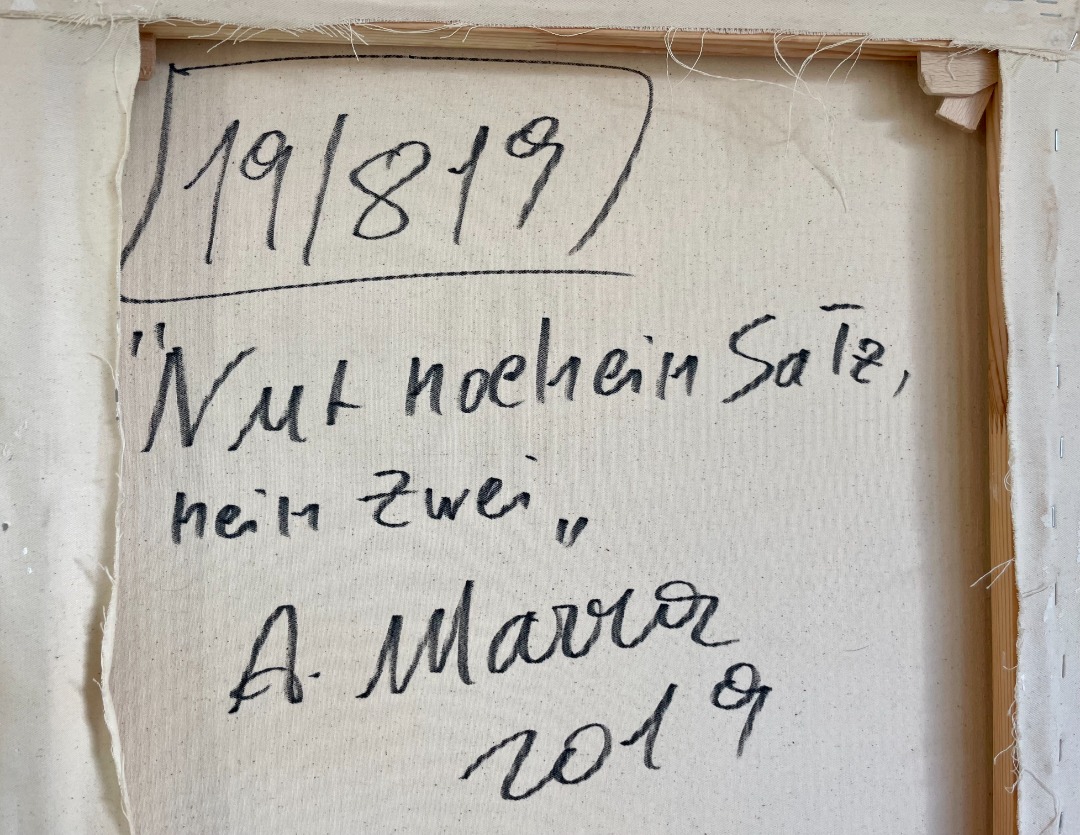 19/819
"Nur noch ein Satz,
nein zwei„
A. Marra
2019